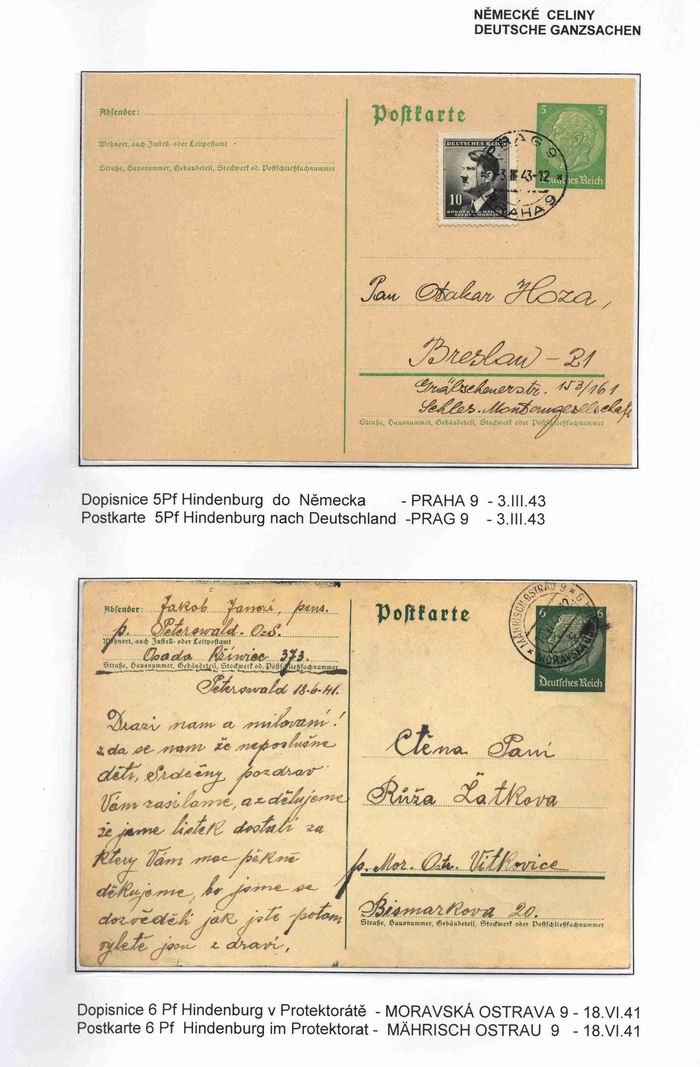 NĚMECKÉ CELINY
DEUTSCHE GANZSACHEN
Absender:
Wohnort, auch Zustell- oder Leitpostamt
Straße, Hausnummer, Gebäudeteil, Stockwerk od. Postschließfachnummer
Postkarte
DEUTSCHES REICH
10
BÖHMEN u. MÄHREN
ČECHY a MORAVA
5 5
Deutsches Reich
PRAG 9
-3.III.43-12
PRAHA 9
Pan Otakar Hoza,
Breslau - 21
Gräbschenerstr. 153/161
Schles. Montangesellschaft
Straße, Hausnummer, Gebäudeteil, Stockwerk oder Postschließfachnummer
Dopisnice 5Pf Hindenburg do Německa - PRAHA 9 - 3.III.43
Postkarte 5Pf Hindenburg nach Deutschland -PRAG 9 - 3.III.43
Absender: Jakob Janeri, pens.
p. Peterswald - O.S.
Wohnort, auch Zustell- oder Leitpostamt
Osada 373.
Straße, Hausnummer, Gebäudeteil, Stockwerk od. Postschließfachnummer
Peterswald 18-6-41.
Drazi nam a milovaní!
zda se nam že neposlušne
děti, Srdečny pozdrav
Vám zasilame, a zdělujeme
že jsme listek dostali za
ktery Vám moc pěkně
děkujeme, bo jsme se
dozvěděli jak jste potom
vyletě jsou z dravi,
Postkarte
6 6
Deutsches Reich
MÄHRISCH OSTRAU 9
MORAVSKÁ
Ctěna Paní
Růža Žatkova
p. Mor. Ostr. Vitkovice
Bismarkova 20.
Straße, Hausnummer, Gebäudeteil, Stockwerk oder Postschließfachnummer
Dopisnice 6 Pf Hindenburg v Protektorátě - MORAVSKÁ OSTRAVA 9 - 18.VI.41
Postkarte 6 Pf Hindenburg im Protektorat - MÄHRISCH OSTRAU 9 - 18.VI.41